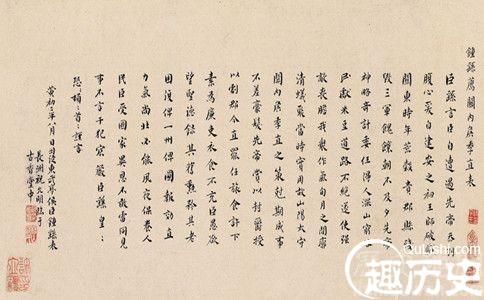 鍾繇薦關內侯季直表
臣繇言臣自遭遇先帝忝列
腹心爰自建安之初王師破賊
關東時年荒穀貴郡縣殘
毀三軍餽饟朝不及夕先帝
神略奇計委任得人深山窮谷
民獻米豆道路不絕遂使強
敵喪膽我眾作氣旬月之間廓
清蟻聚當時實用故山陽太守
關內侯季直之策剋期成事
不差豪髮先帝賞以封爵授
以劇郡今直罷任旅食許下
素為廉吏衣食不充臣愚欲
望聖德錄其舊勳矜其老
困復俾一州俾圖報效直
力氣尚壯必能夙夜保養人
民臣受國家異恩不敢雷同見
事不言干犯宸嚴臣繇皇〻
恐〻頓〻首〻謹言
黃初二年八月日司徒東武亭侯臣鍾繇表
長洲祝允明臨于
古香堂中
QuLishi.com
趣历史